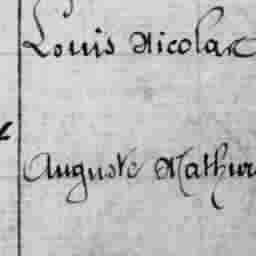 Louis Nicolas
Auguste Mathur